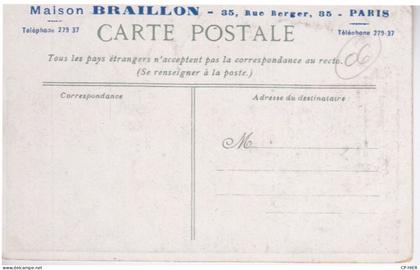 Maison BRAILLON - 35, Rue Berger, 35 - PARIS
Téléphone 279-37 Téléphone 279-37
CARTE POSTALE
Tous les pays étrangers n'acceptent pas la correspondance au recto.
(Se renseigner à la poste.)
Correspondance
Adresse du destinataire
M
CP-HIER